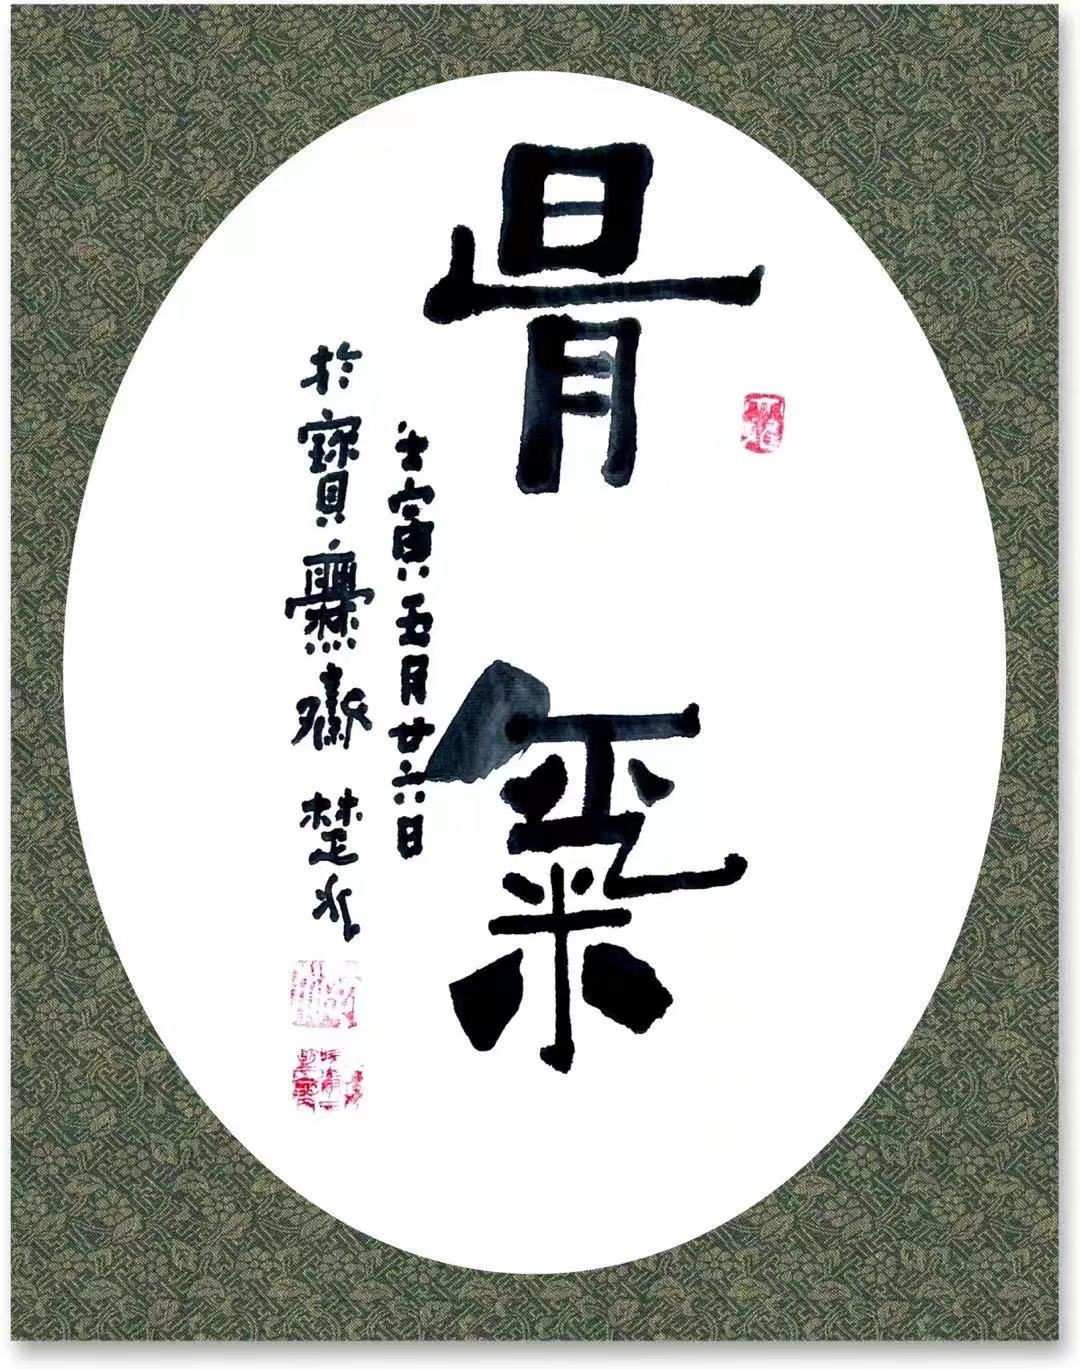 骨氣
壬寅五月廿六日
於寶爨齋 楚水